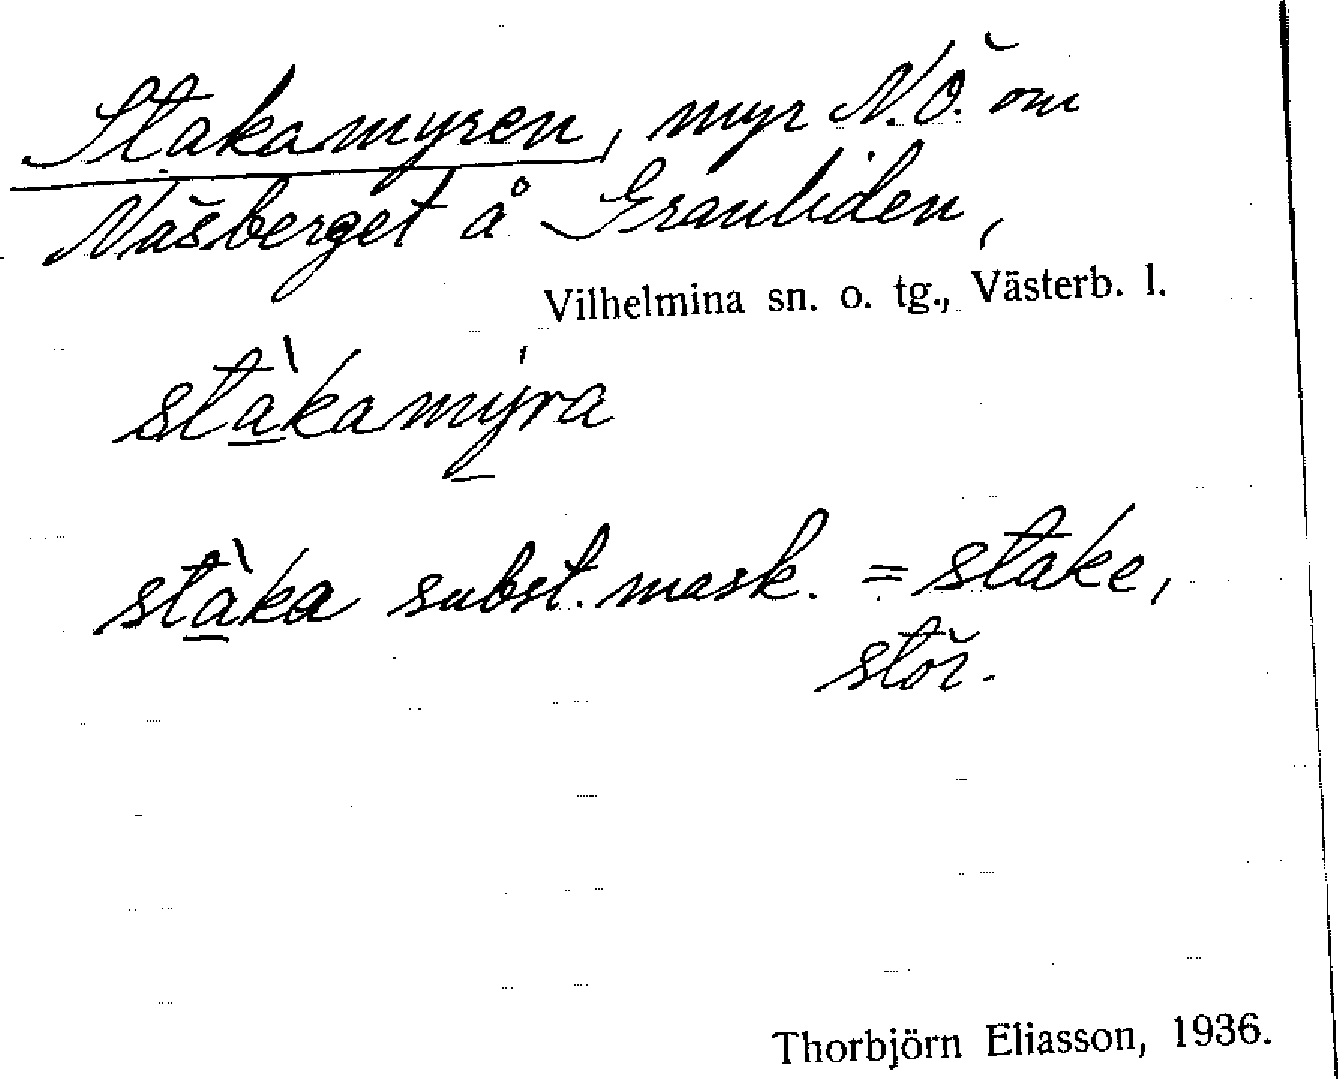 Stakamyren, myr N.Ö. om
Näsberget å Granliden,
Vilhelmina sn. o. tg., Västerb. l.
stàkamýra
stàka subst. mask. = stake,
stör.
Thorbjörn Eliasson, 1936.